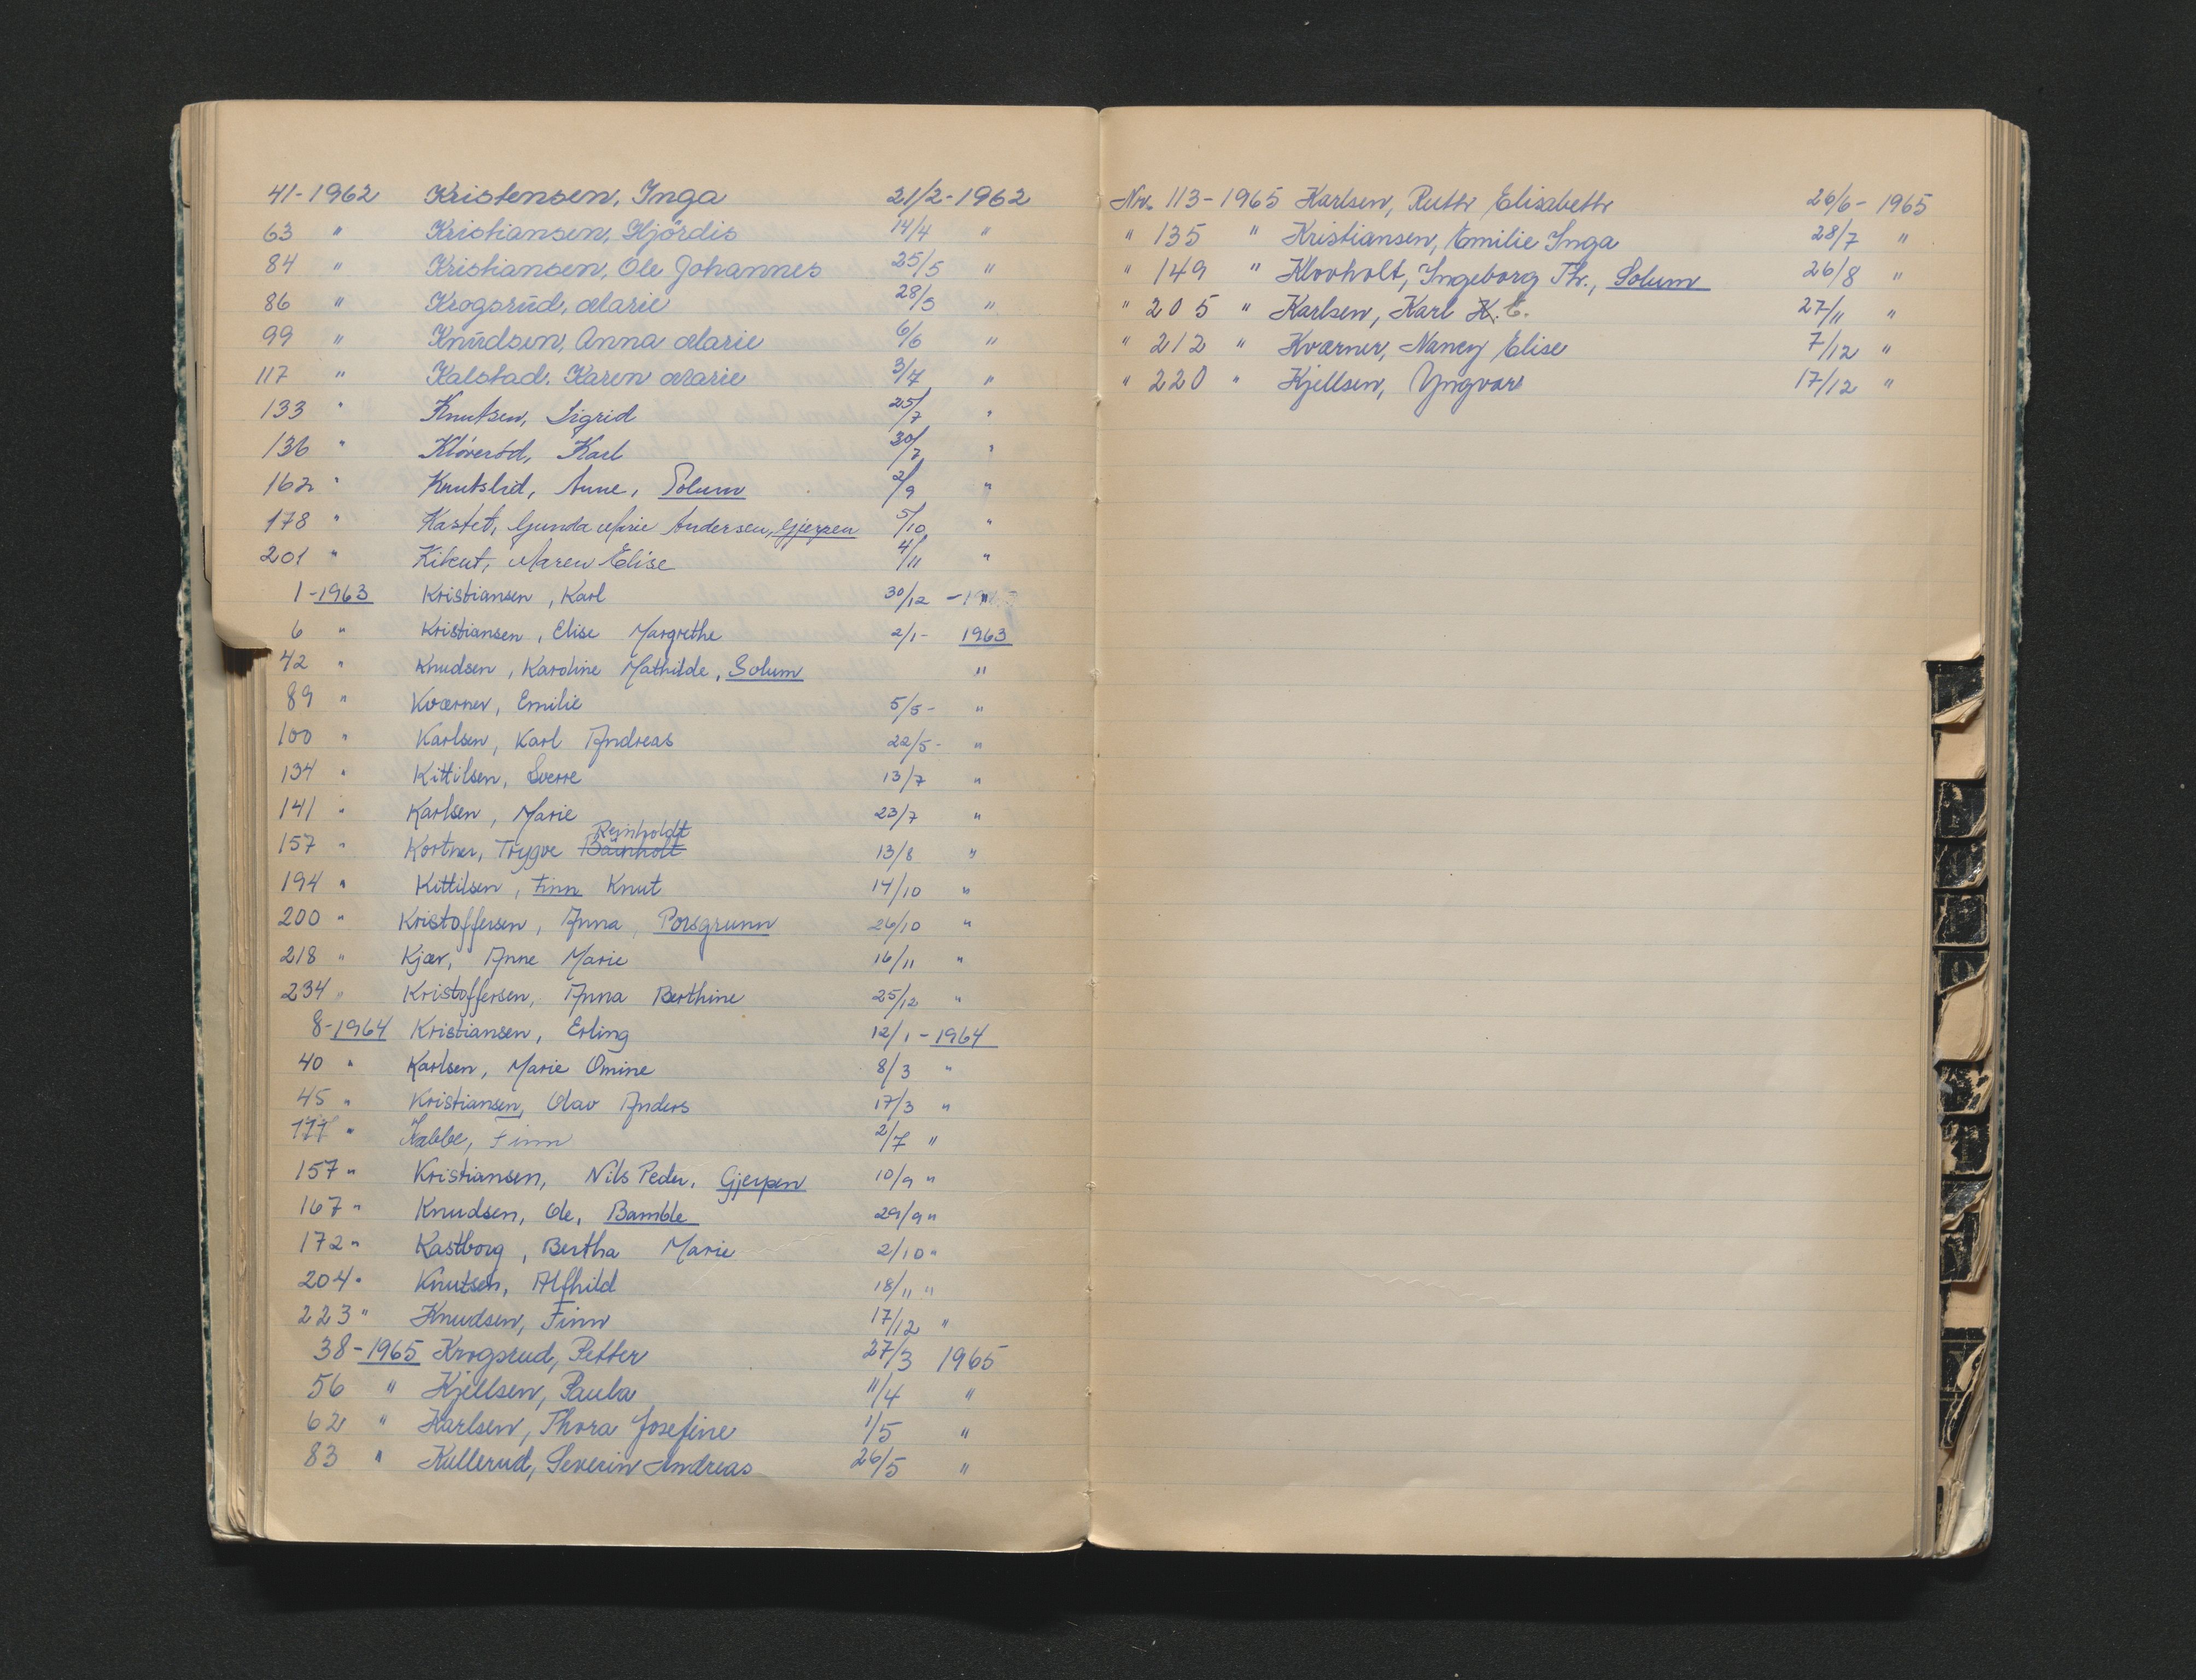 41-1962 Kristensen, Inga 21/2-1962
63 " Kristiansen, Hjördis 14/4 "
84 " Kristiansen, Ole Johannes 25/5 "
86 " Krogsrud, Marie 28/5 "
99 " Knudsen, Anna Marie 6/6 "
117 " Kalstad, Karen Marie 3/7 "
133 " Knutsen, Sigrid 25/7 "
136 " Kløverød, Karl 30/7 "
162 " Knutslid, Anne, Solum 2/9 "
178 " Kastet, Gunda Marie Andersen, Gjerpen 5/10 "
201 " Kikut, Maren Elise 4/11 "
1-1963 Kristiansen, Karl 30/12 - "
6 " Kristiansen, Elise Margrethe 2/1- 1963
42 " Knudsen, Karoline Mathilde, Solum "
89 " Kværner, Emilie 5/5- "
100 " Karlsen, Karl Andreas 22/5- "
134 " Kittilsen, Sverre 13/7 "
141 " Karlsen, Marie 23/7 "
Reinholdt
157 " Kortner, Trygve Bainholt 13/8 "
194 " Kittilsen, Finn Knut 14/10 "
200 " Kristoffersen, Anna, Porsgrunn 26/10 "
218 " Kjær, Anne Marie 16/11 "
234 " Kristoffersen, Anna Berthine 25/12 "
8-1964 Kristiansen, Erling 12/1-1964
40 " Karlsen, Marie Omine 8/3 "
45 " Kristiansen, Olav Anders 17/3 "
" Kabbe, Finn 2/7 "
157 " Kristiansen, Nils Peder, Gjerpen 10/9 "
167 " Knudsen, Ole, Bamble 29/9 "
172 " Kastborg, Bertha Marie 2/10 "
204 " Knutsen, Alfhild 18/11 "
223 " Knudsen, Finn 17/12 "
38-1965 Krogsrud, Petter 27/3 1965
56 " Kjellsen, Paula 11/4 "
62 " Karlsen, Thora Josefine 1/5 "
83 " Kullerud, Severin Andreas 26/5 "
Nr. 113-1965 Karlsen, Ruth Elisabeth 26/6-1965
" 135 " Kristiansen, Emilie Inga 28/7 "
" 149 " Klovholt, Ingeborg Th., Solum 26/8 "
" 205 " Karlsen, Karl K. E. 27/11 "
" 212 " Kværner, Nancy Elise 7/12 "
" 220 " Kjellsen, Yngvar 17/12 "